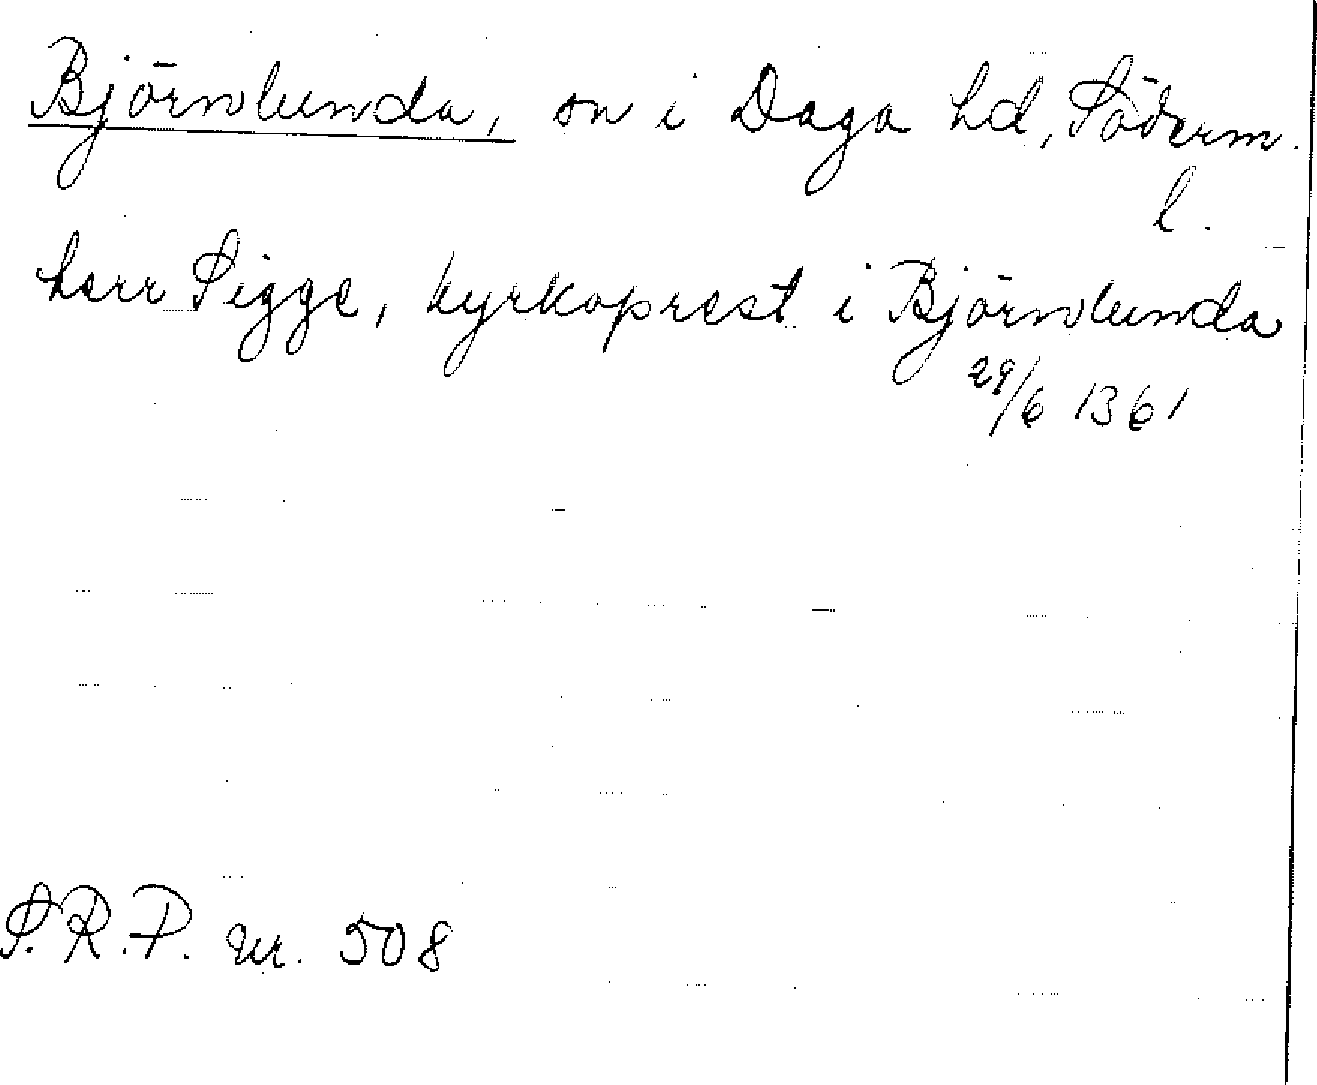 Björnlunda, sn i Daga hd, Söderm.
l.
herr Sigge, kyrkoprest i Björnlunda
29/6 1361
S.R.P. nr. 508